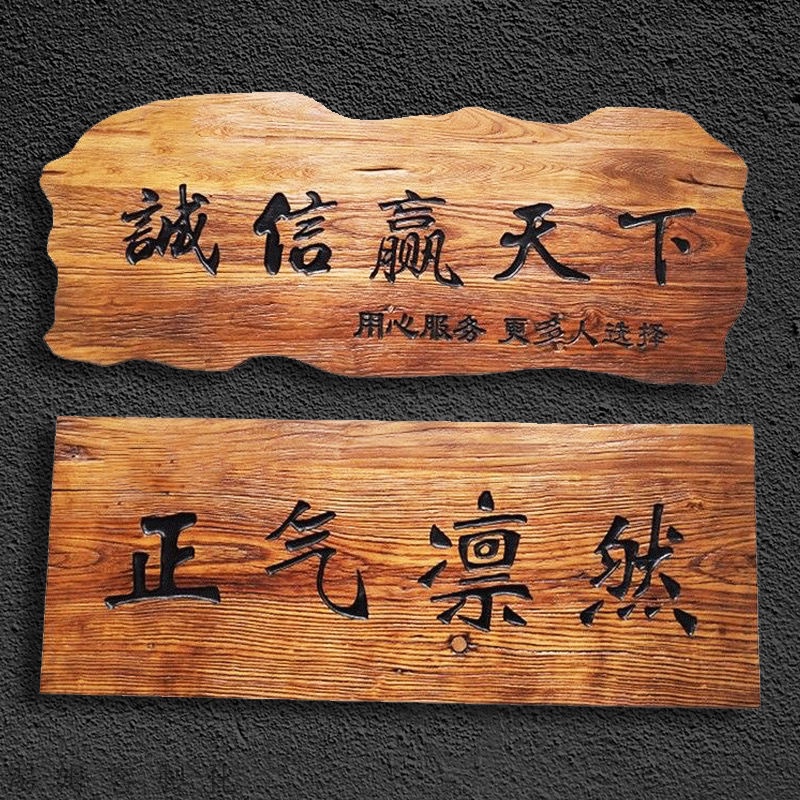 誠信赢天下
用心服务 更多人选择
正气凛然